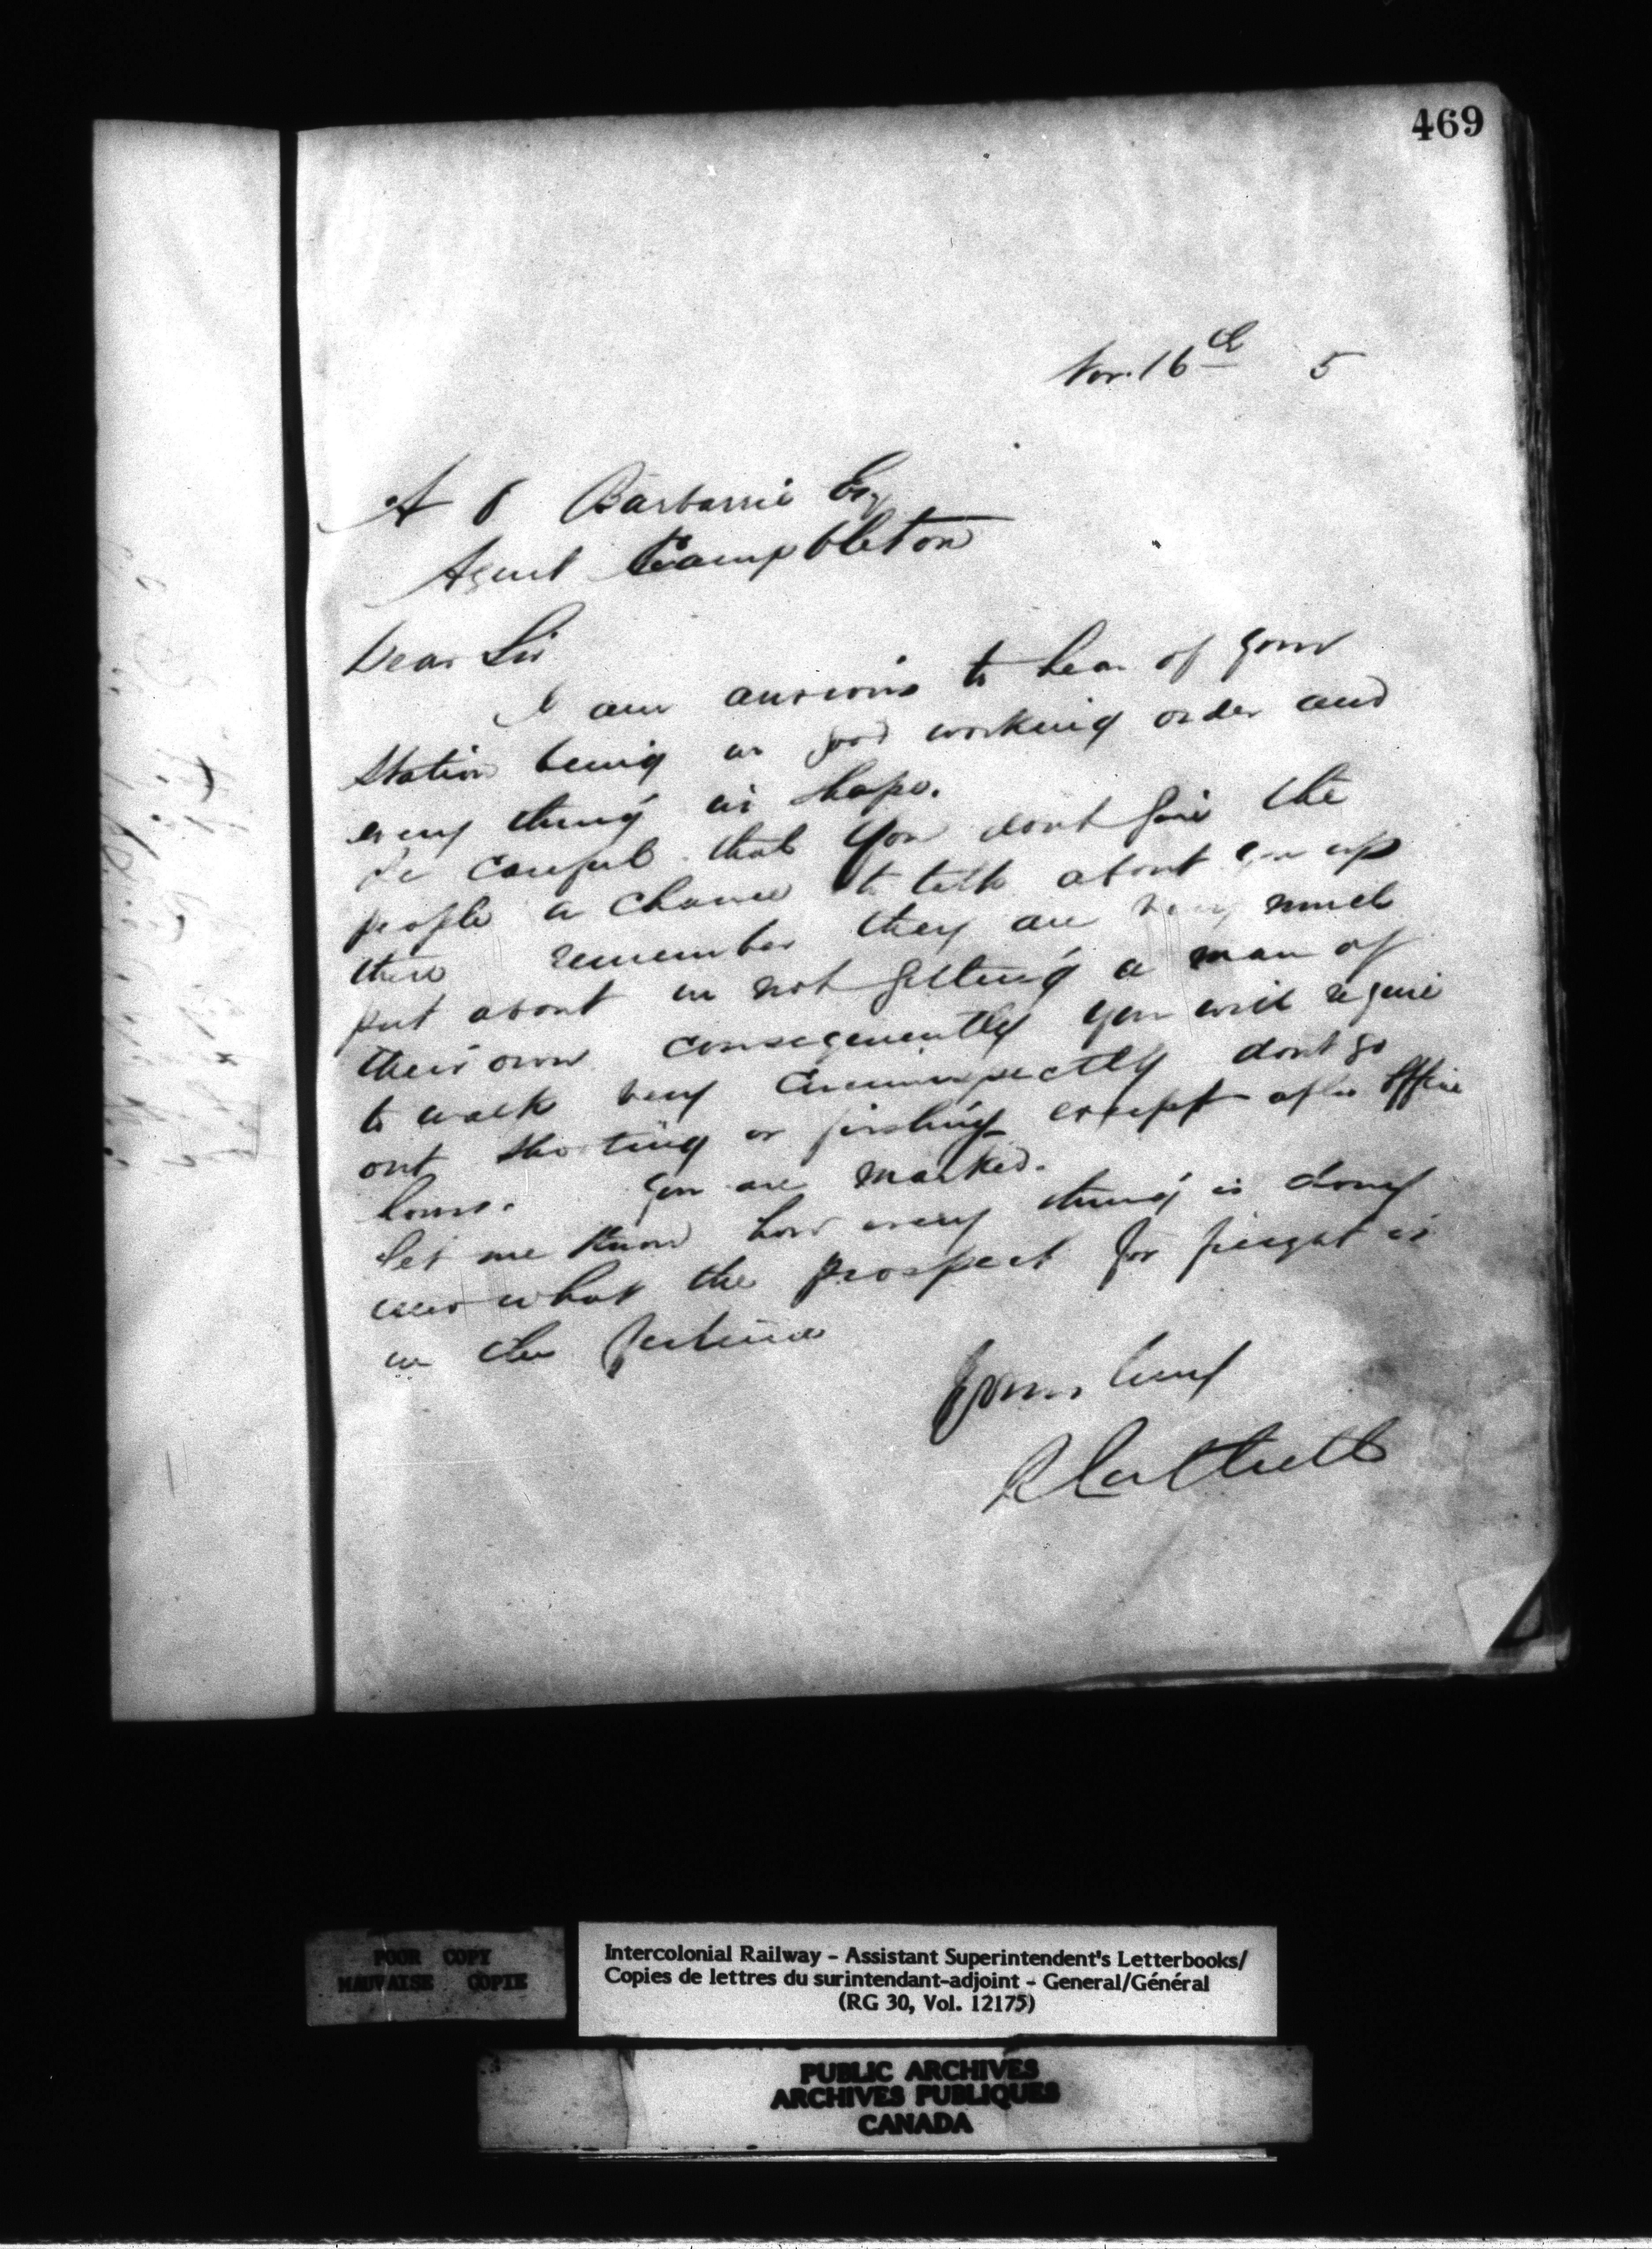 469
Nov. 16th 5
A Barbarie Esq
Agent Campbleton
Dear Sir
I am anxious to hear of your
Station being in good working order and
every thing in shape.
Be careful that you dont give the
people a chance to talk about you up
there remember they are very much
put about in not getting a man of
their own consequently you will require
to walk very circumspectly dont go
out shooting or fishing except after office
hours. You are marked.
Let me know how every thing is doing
and what the prospect for freight is
in the future
Yours truly
POOR COPY
MAUVAISE COPIE
Intercolonial Railway - Assistant Superintendent's Letterbooks/
Copies de lettres du surintendant-adjoint - General/Général
(RG 30, Vol. 12175)
PUBLIC ARCHIVES
ARCHIVES PUBLIQUES
CANADA